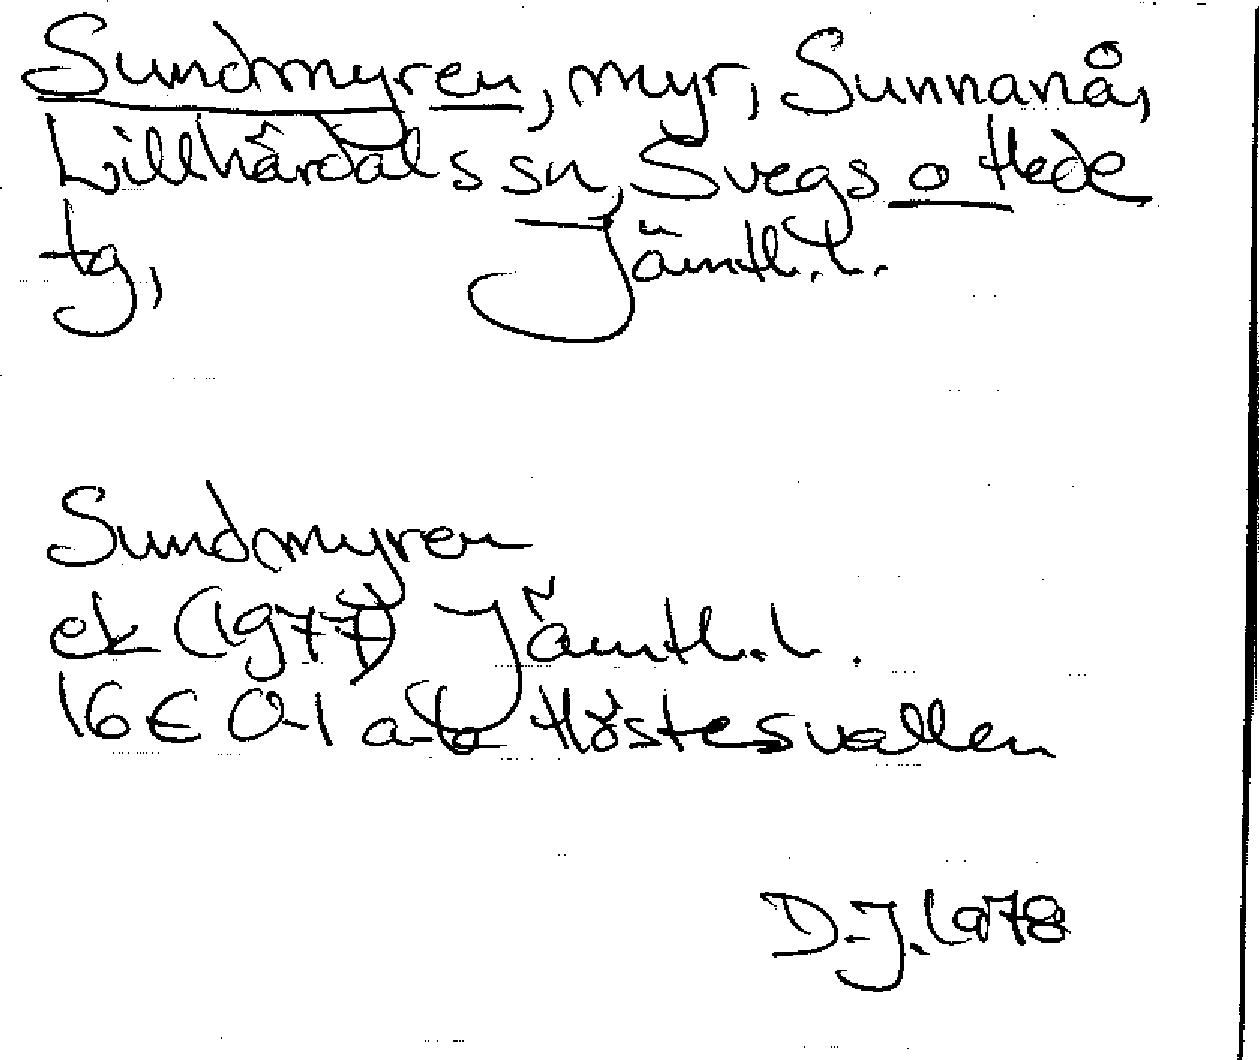 Sundmyren, myr, Sunnanå,
Lillhärdals sn, Svegs o Hede
tg, Jämtl. l.
Sundmyren
ek (1977) Jämtl. l.
16 E 0-1 a-b Höstesvallen
D.J. 1978